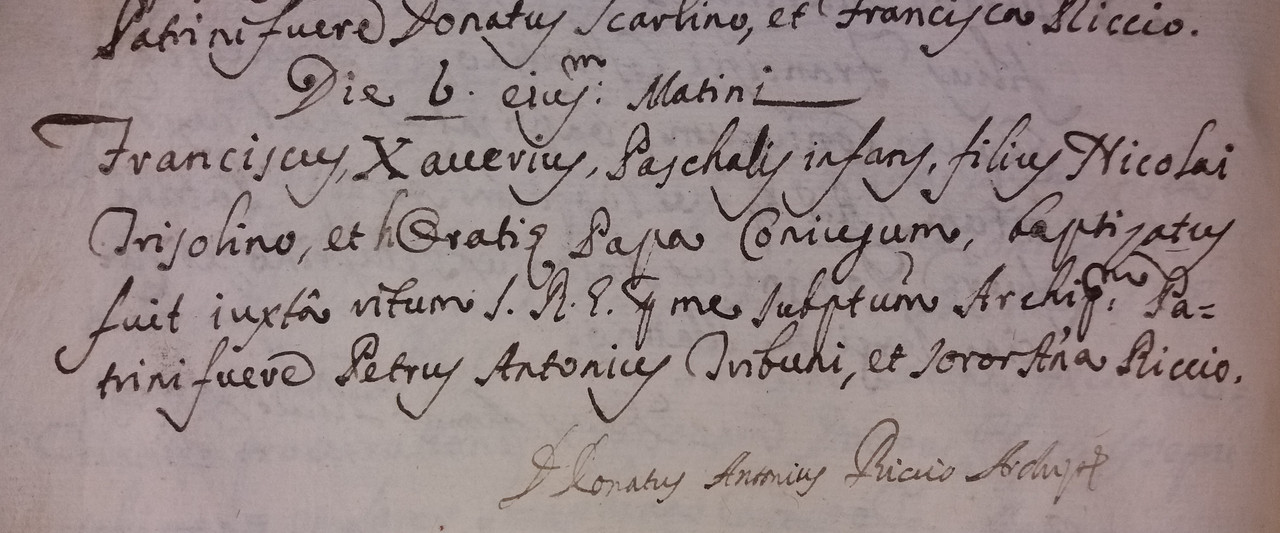 Patrini fuere Donatus Scarlino, et Francisca Riccio.
Die 6. eiusm: Matini
Franciscus, Xauerius, Paschalis infans, filius Nicolai
Trisolino, et hOratię Papa Coniugum, baptizatus
fuit iuxta ritum S. R. E. p me subptum Archipm: Pa=
trini fuere Petrus Antonius Tribuni, et soror Ana Riccio.
D Donatus Antonius Riccio Archipr